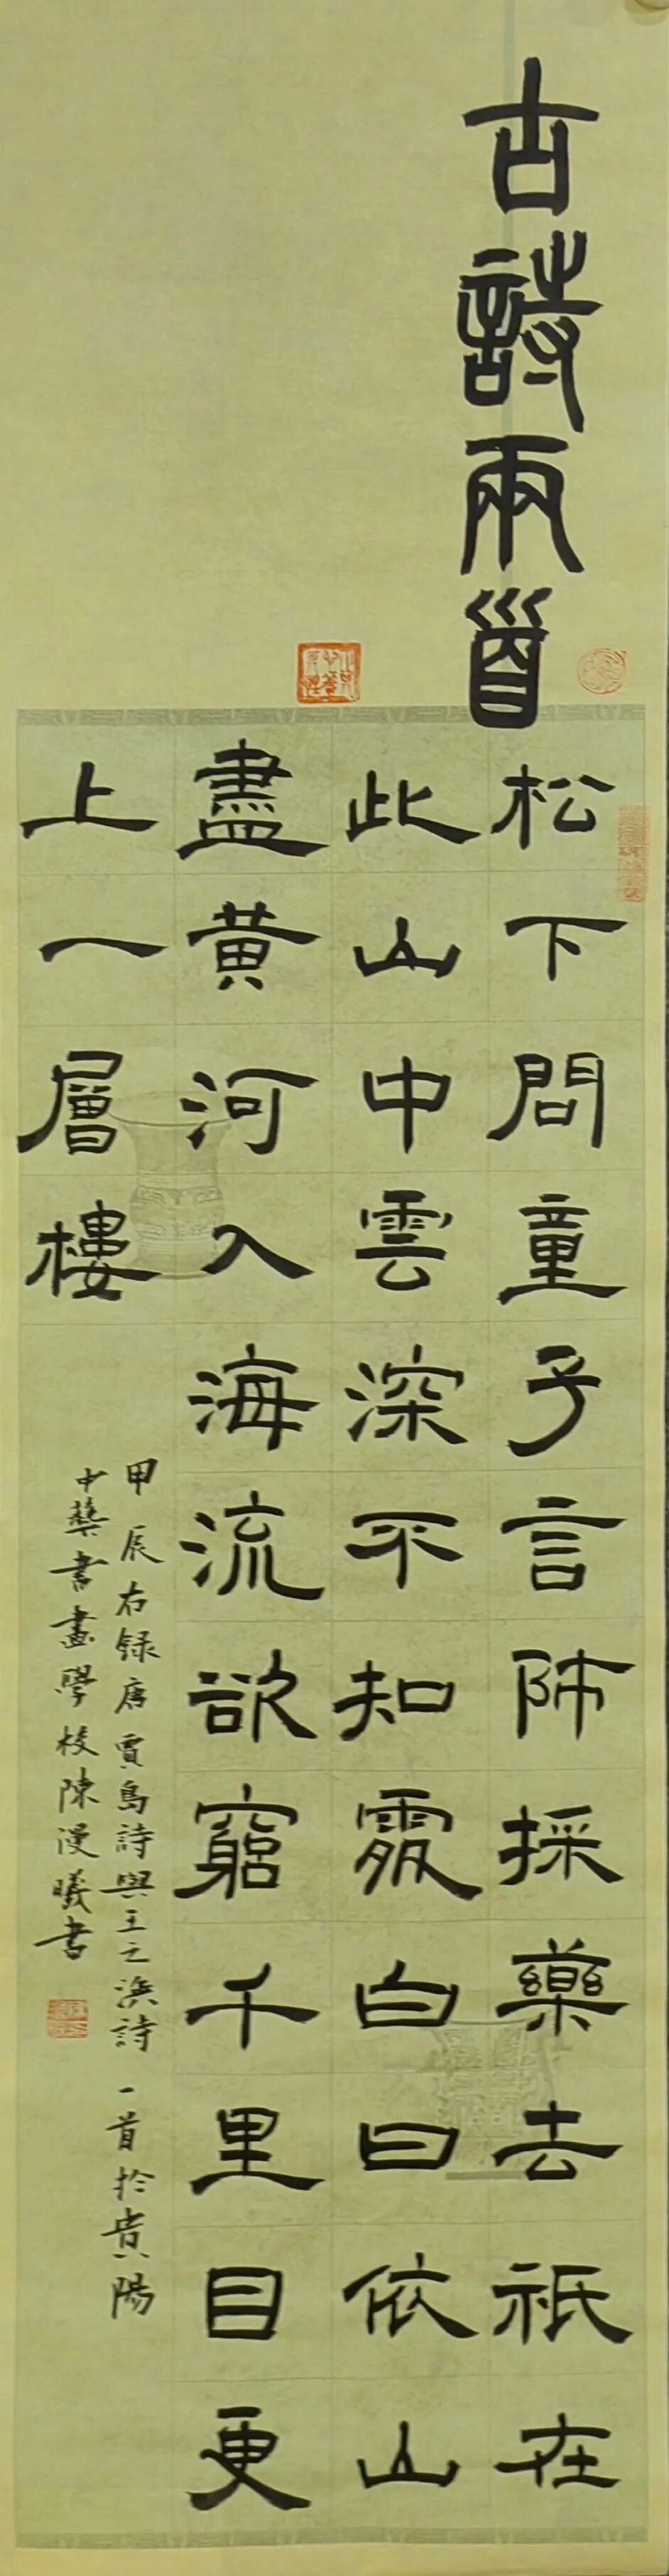 古詩兩首
松下問童子言師採藥去祇在
此山中雲深不知處白日依山
盡黃河入海流欲窮千里目更
上一層樓
甲辰右録唐賈島詩與王之渙詩一首於貴陽
中藝書畫學校陳漫曦書